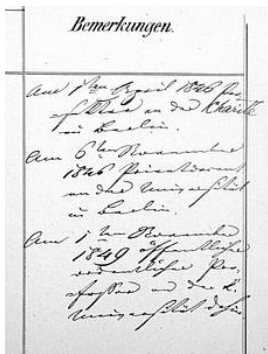 Bemerkungen.
Am 1ten April 1846 Pro-
sektor an der Charité
in Berlin.
Am 6ten November
1846 Privatdocent
an der Universität
in Berlin.
Am 1ten November
1849 öffentlicher
ordentlicher Pro-
fessor an der K.
Universität dahier.